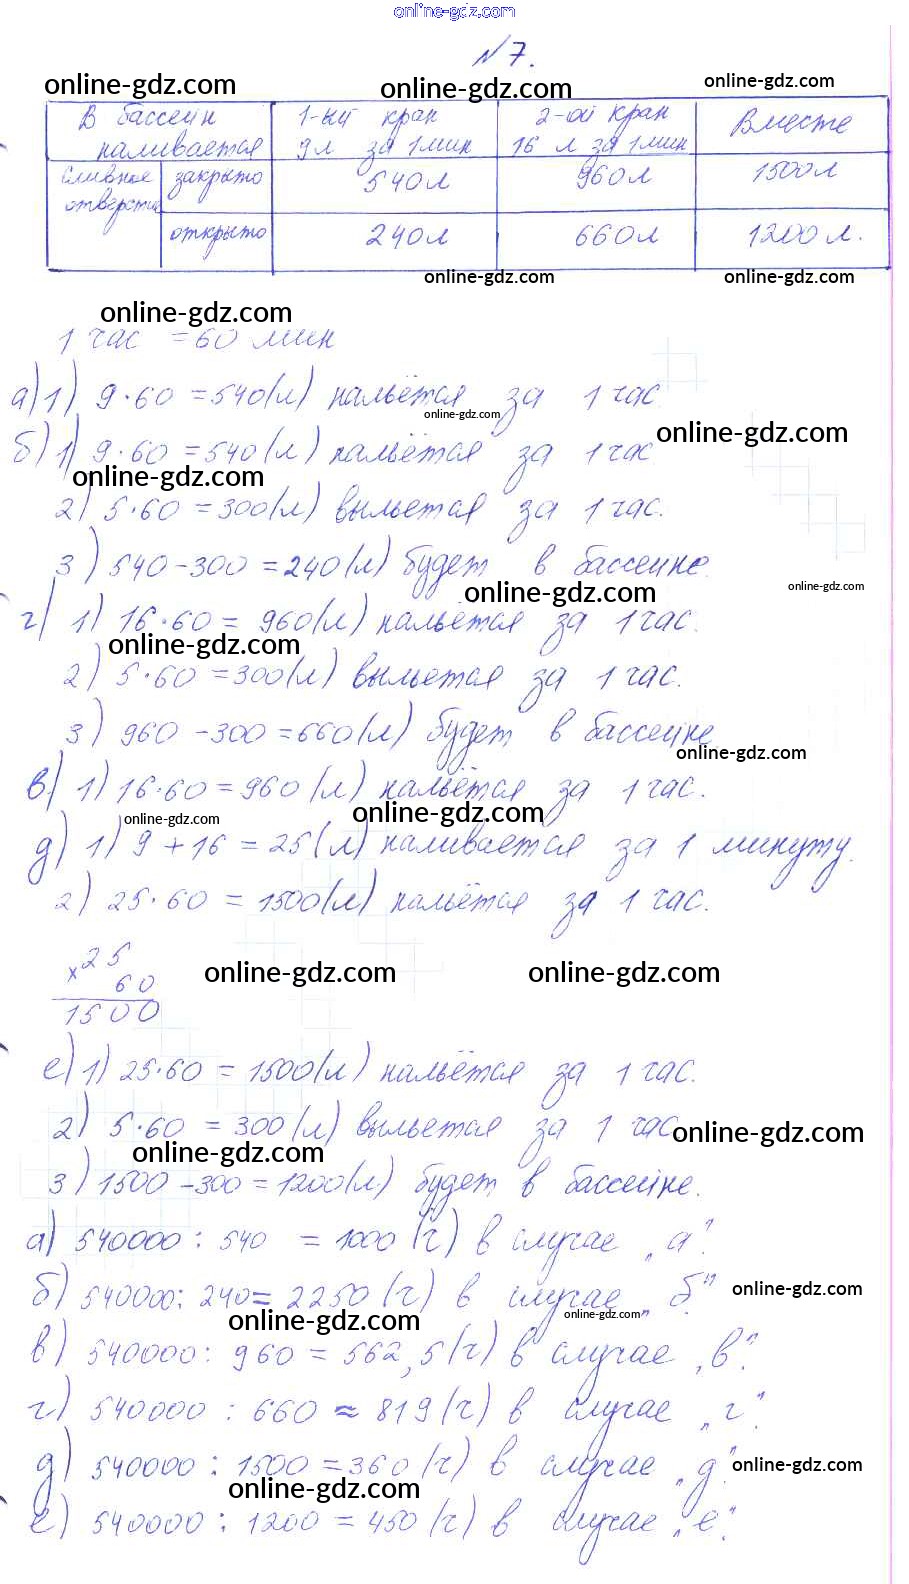 online-gdz.com
№7.
online-gdz.com online-gdz.com online-gdz.com
В бассейн наливается
1-ый кран 9л за 1мин
2-ой кран 16 л за 1мин
Вместе
сливное отверстие
закрыто 540л 960л 1500л
открыто 240л 660л 1200л.
online-gdz.com online-gdz.com
online-gdz.com
1 час = 60 мин
а) 1) 9·60 = 540(л) нальётся за 1 час.
online-gdz.com
online-gdz.com
б) 1) 9·60 = 540(л) нальётся за 1 час
online-gdz.com
2) 5·60 = 300(л) выльется за 1 час.
3) 540 - 300 = 240(л) будет в бассейне.
online-gdz.com online-gdz.com
г) 1) 16·60 = 960(л) нальётся за 1 час.
online-gdz.com
2) 5·60 = 300(л) выльется за 1 час.
3) 960 - 300 = 660(л) будет в бассейне
online-gdz.com
в) 1) 16·60 = 960(л) нальётся за 1 час.
online-gdz.com online-gdz.com
д) 1) 9 + 16 = 25(л) наливается за 1 минуту.
2) 25·60 = 1500(л) нальётся за 1 час.
× 25
60
1500
online-gdz.com online-gdz.com
е) 1) 25·60 = 1500(л) нальётся за 1 час.
2) 5·60 = 300(л) выльется за 1 час
online-gdz.com
online-gdz.com
3) 1500 - 300 = 1200(л) будет в бассейне.
а) 540000 : 540 = 1000 (ч) в случае „а".
б) 540000 : 240 = 2250 (ч) в случае „б"
online-gdz.com
online-gdz.com online-gdz.com
в) 540000 : 960 = 562,5 (ч) в случае „в".
г) 540000 : 660 ≈ 819 (ч) в случае „г".
д) 540000 : 1500 = 360 (ч) в случае „д".
online-gdz.com
online-gdz.com
е) 540000 : 1200 = 450 (ч) в случае „е".